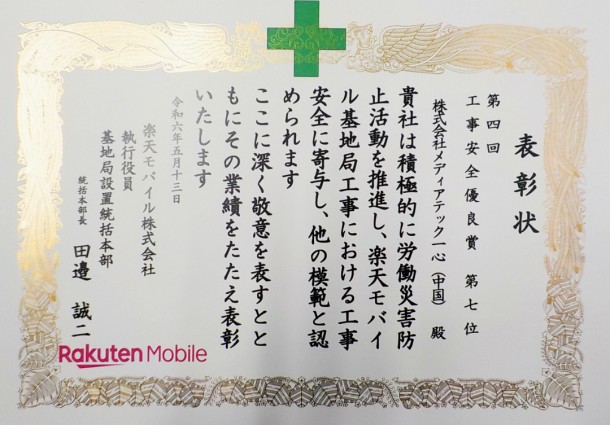 表彰状
第四回
工事安全優良賞 第七位
株式会社メディアテック一心(中国) 殿
貴社は積極的に労働災害防
止活動を推進し、楽天モバイ
ル基地局工事における工事
安全に寄与し、他の模範と認
められます
ここに深く敬意を表すとと
もにその業績をたたえ表彰
いたします
令和六年五月十三日
楽天モバイル株式会社
執行役員
基地局設置統括本部
統括本部長 田邉 誠二
Rakuten Mobile